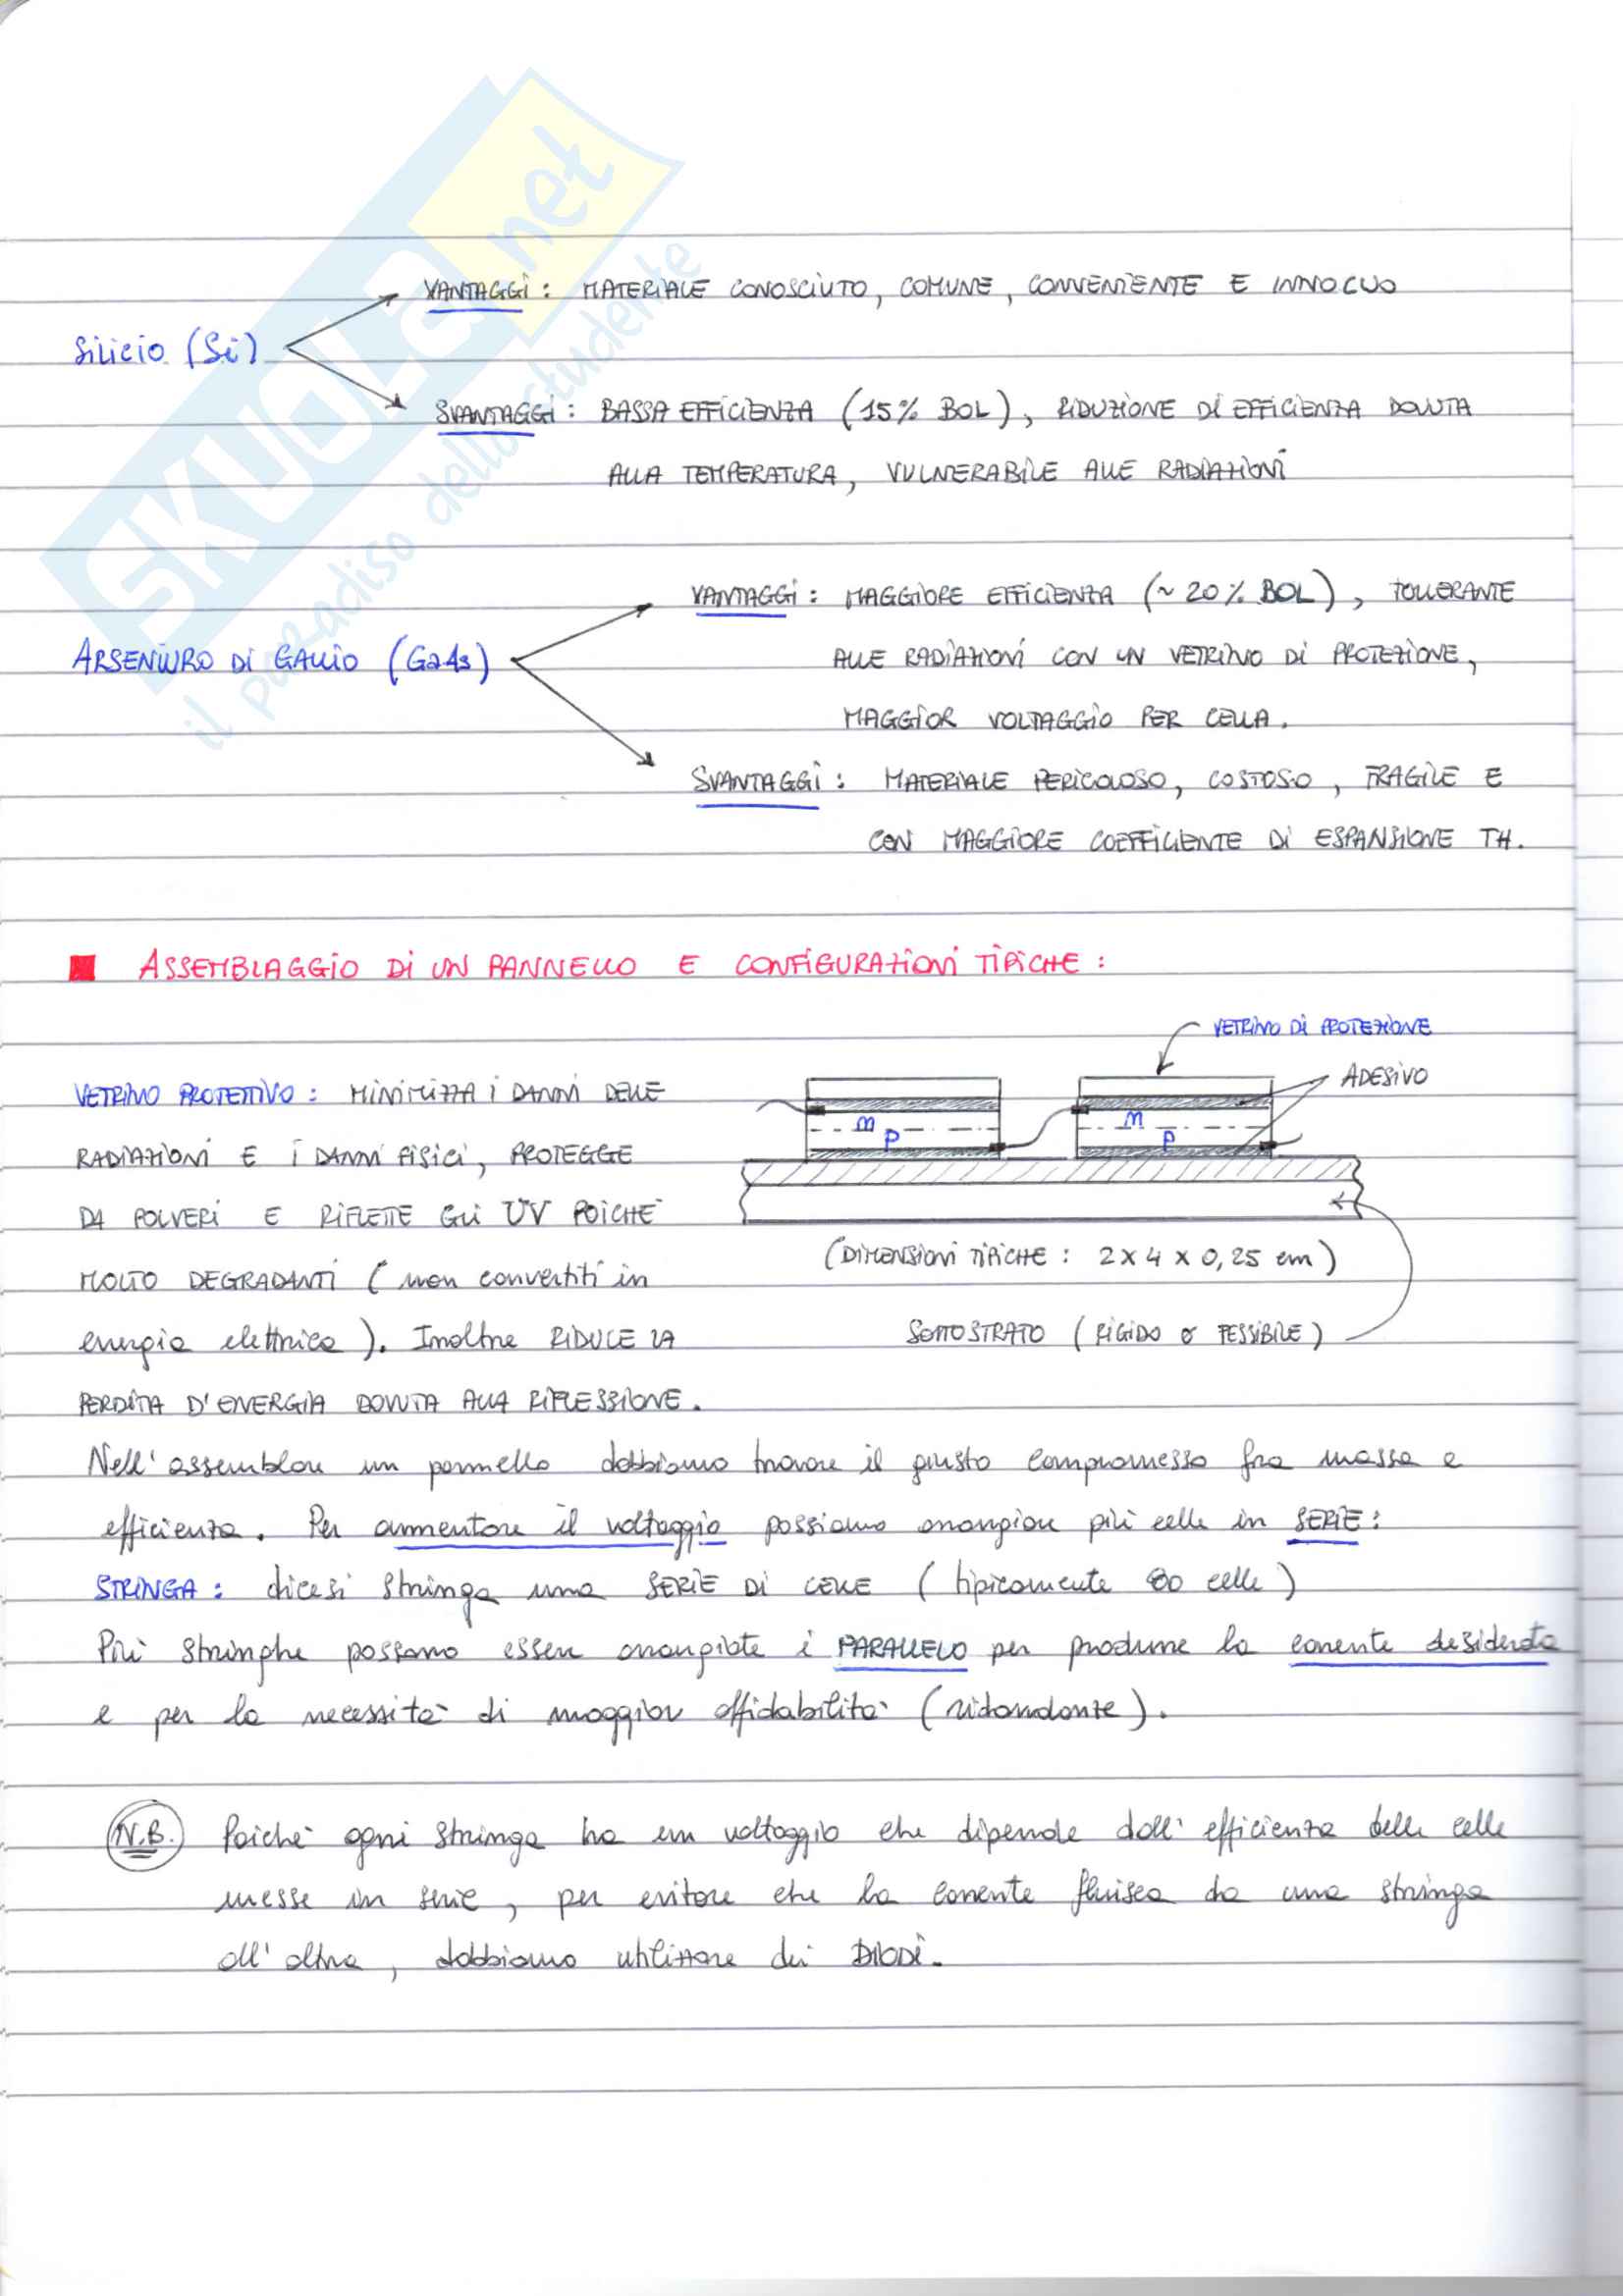 SKUOLA.net
il paradiso dello studente
VANTAGGI : MATERIALE CONOSCIUTO, COMUNE, CONVENIENTE E INNOCUO
Silicio (Si)
SVANTAGGI : BASSA EFFICIENZA (15% BOL), RIDUZIONE DI EFFICIENZA DOVUTA
ALLA TEMPERATURA, VULNERABILE ALLE RADIAZIONI
VANTAGGI : MAGGIORE EFFICIENZA (~ 20% BOL), TOLLERANTE
ARSENIURO DI GALLIO (GaAs)
ALLE RADIAZIONI CON UN VETRINO DI PROTEZIONE,
MAGGIOR VOLTAGGIO PER CELLA.
SVANTAGGI : MATERIALE PERICOLOSO, COSTOSO, FRAGILE E
CON MAGGIORE COEFFICIENTE DI ESPANSIONE TH.
ASSEMBLAGGIO DI UN PANNELLO E CONFIGURAZIONI TIPICHE :
VETRINO DI PROTEZIONE
ADESIVO
n n
p p
VETRINO PROTETTIVO : MINIMIZZA I DANNI DELLE
RADIAZIONI E I DANNI FISICI, PROTEGGE
DA POLVERI E RIFLETTE GLI UV POICHÈ
MOLTO DEGRADANTI (non convertiti in
energia elettrica). Inoltre RIDUCE LA
PERDITA D'ENERGIA DOVUTA ALLA RIFLESSIONE.
(DIMENSIONI TIPICHE : 2 x 4 x 0,25 cm)
SOTTOSTRATO (RIGIDO O FLESSIBILE)
Nell'assemblare un pannello dobbiamo trovare il giusto compromesso fra massa e
efficienza. Per aumentare il voltaggio possiamo arrangiare più celle in SERIE:
STRINGA : dicesi stringa una SERIE DI CELLE (tipicamente 80 celle)
Più stringhe possono essere arrangiate i PARALLELO per produrre la corrente desiderata
e per la necessità di maggior affidabilità (ridondante).
N.B. Poichè ogni stringa ha un voltaggio che dipende dall'efficienza delle celle
messe in serie, per evitare che la corrente fluisca da una stringa
all'altra, dobbiamo utilizzare dei DIODI.